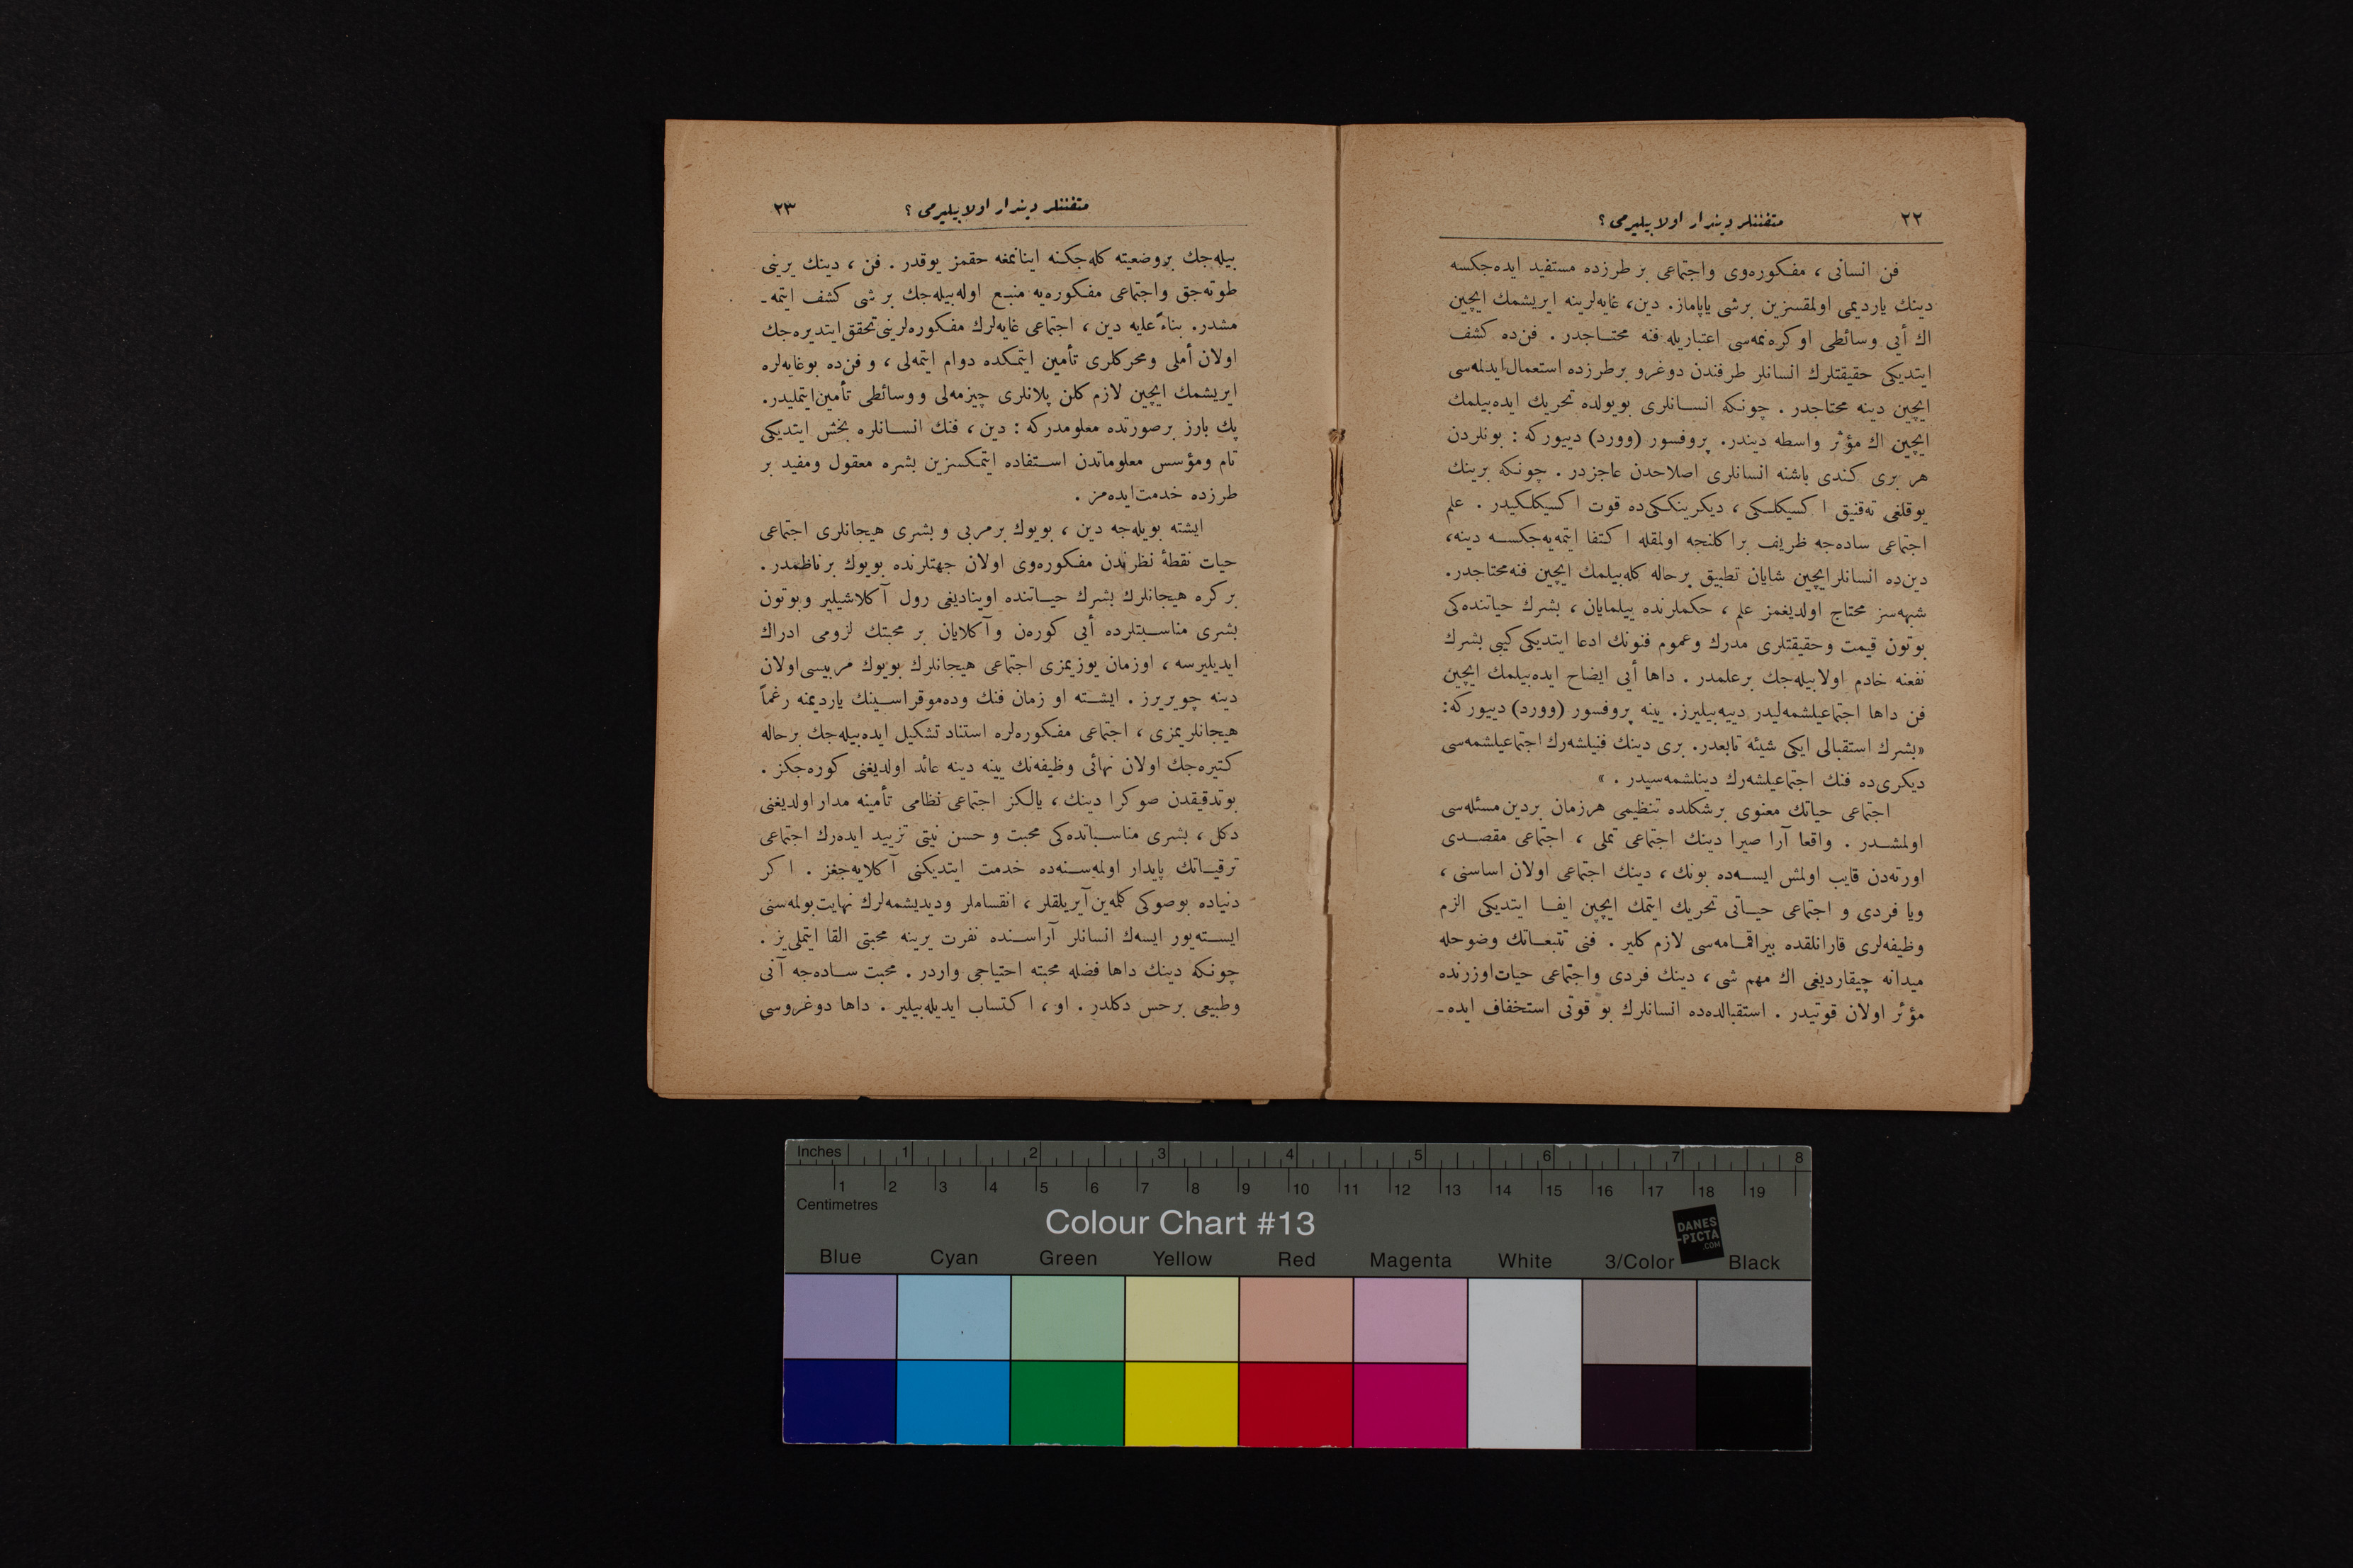 ٢٢
متفننلر دیندار اولابیلیرمی ؟
فن انسانی ، مفکوره‌وی واجتماعی بر طرزده مستفید ایده‌جکسه
دینك یاردیمی اولمقسزین برشی یاپاماز. دین، غایه‌لرینه ایریشمك ایچین
اك أیی وسائطی اوکره‌نمه‌سی اعتباریله فنه محتـاجدر . فن‌ده کشف
ایتدیکی حقیقتلرك انسانلر طرفندن دوغرو برطرزده استعمال ایدلمه‌سی
ایچین دینه محتاجدر . چونکه انسـانلری بویولده تحریك ایده‌بیلمك
ایچین اك مؤثر واسطه دیندر. پروفسور (وورد) دییورکه : بونلردن
هر بری کندی باشنه انسانلری اصلاحدن عاجزدر . چونکه برینك
یوقلغی ته‌قنیق اکسیکلـکی ، دیکرینکـکی‌ده قوت اکسیکلـکیدر . علم
اجتماعی ساده‌جه ظریف براکلنجه اولمقله اکتفا ایتمه‌یه‌جکسـه دینه،
دین‌ده انسانلر ایچین شایان تطبیق برحاله کله‌بیلمك ایچین فنه محتاجدر.
شبهه‌سز محتاج اولدیغمز علم ، حکملرنده ییلمایان ، بشرك حیاتنده‌کی
بوتون قیمت وحقیقتلری مدرك وعموم فنونك ادعا ایتدیکی کیبی بشرك
نفعنه خادم اولابیله‌جك برعلمدر . داها أیی ایضاح ایده‌بیلمك ایچین
فن داها اجتماعیلشمه‌لیدر دییه‌بیلیرز. یینه پروفسور (وورد) دییورکه:
«بشرك استقبالی ایکی شیئه تابعدر. بری دینك فنیلشه‌رك اجتماعیلشمه‌سی
دیکری‌ده فنك اجتماعیلشه‌رك دینلشمه‌سیدر . »
اجتماعی حیاتك معنوی برشکلده تنظیمی هرزمان بردین مسئله‌سی
اولمشـدر . واقعا آرا صیرا دینك اجتماعی تملی ، اجتماعی مقصـدی
اورته‌دن قایب اولمش ایسـه‌ده بونك ، دینك اجتماعی اولان اساسنی ،
ویا فردی و اجتماعی حیـاتی تحریك ایتمك ایچین ایفـا ایتدیکی الزم
وظیفه‌لری قارانلقده بیراقـامه‌سی لازم کلیر . فنی تتبعـاتك وضوحله
میدانه چیقاردیغی اك مهم شی ، دینك فردی واجتماعی حیات اوزرنده
مؤثر اولان قوتیدر . استقبالده‌ده انسانلرك بو قوتی استخفاف ایده -
متفننلر دیندار اولابیلیرمی ؟
٢٣
بیله‌جك بروضعیته کله‌جکنه اینانمغه حقمز یوقدر . فن ، دینك یرینی
طوته‌جق واجتماعی مفکوره‌یه منبـع اوله‌بیله‌جك بر شی کشف ایتمه -
مشدر. بناءً علیه دین ، اجتماعی غایه‌لرك مفکوره‌لرینی تحقق ایتدیره‌جك
اولان أملی ومحرکلری تأمین ایتمـکده دوام ایتمه‌لی ، و فن‌ده بوغایه‌لره
ایریشمك ایچین لازم کلن پلانلری چیزمه‌لی و وسائطی تأمین ایتملیدر.
پك بارز برصورتده معلومدرکه : دین ، فنك انسـانلره بخش ایتدیکی
تام ومؤسس معلوماتدن اسـتفاده ایتمـکسزین بشره معقول ومفید بر
طرزده خدمت ایده‌مز .
ایشته بویله‌جه دین ، بویوك برمربی و بشری هیجانلری اجتماعی
حیات نقطۀ نظرندن مفکوره‌وی اولان جهتلرنده بویوك برناظمدر .
بر کره هیجانلرك بشرك حیـاتنده اوینادیغی رول آکلاشیلیر وبوتون
بشری مناسـبتلرده أیی کوره‌ن وآکلایان بر محبتك لزومی ادراك
ایدیلیرسه ، اوزمان یوزیمزی اجتماعی هیجانلرك بویوك مربیسی اولان
دینه چویریرز . ایشـته او زمان فنك وده‌موقراسـینك یاردیمنه رغماً
هیجانلریمزی ، اجتماعی مفکوره‌لره استناد تشکیل ایده‌بیله‌جك برحاله
کتیره‌جك اولان نهائی وظیفه‌نك یینه دینه عائد اولدیغنی کوره‌جکز .
بوتدقیقدن صوکرا دینك ، یالکز اجتماعی نظامی تأمینه مدار اولدیغنی
دکل ، بشری مناسـباتده‌کی محبت و حسن نیتی تزیید ایده‌رك اجتماعی
ترقیـاتك پایدار اولمه‌سـنه‌ده خدمت ایتدیکنی آکلایه‌جغز . اکر
دنیاده بوصوکی کلمه‌ین آیریلقلر ، انقساملر ودیدیشمه‌لرك نهایت بولمه‌سنی
ایسـته‌یور ایسه‌ك انسانلر آراسـنده نفرت یرینه محبتی القا ایتملی‌یز .
چونکه دینك داها فضله محبته احتیاجی واردر . محبت سـاده‌جه آنی
وطبیعی برحس دکلدر . او ، اکتساب ایدیله‌بیلیر . داها دوغروسی
Inches 1 2 3 4 5 6 7 8
1 2 3 4 5 6 7 8 9 10 11 12 13 14 15 16 17 18 19
Centimetres
Colour Chart #13
DANES
-PICTA
.COM
Blue Cyan Green Yellow Red Magenta White 3/Color Black